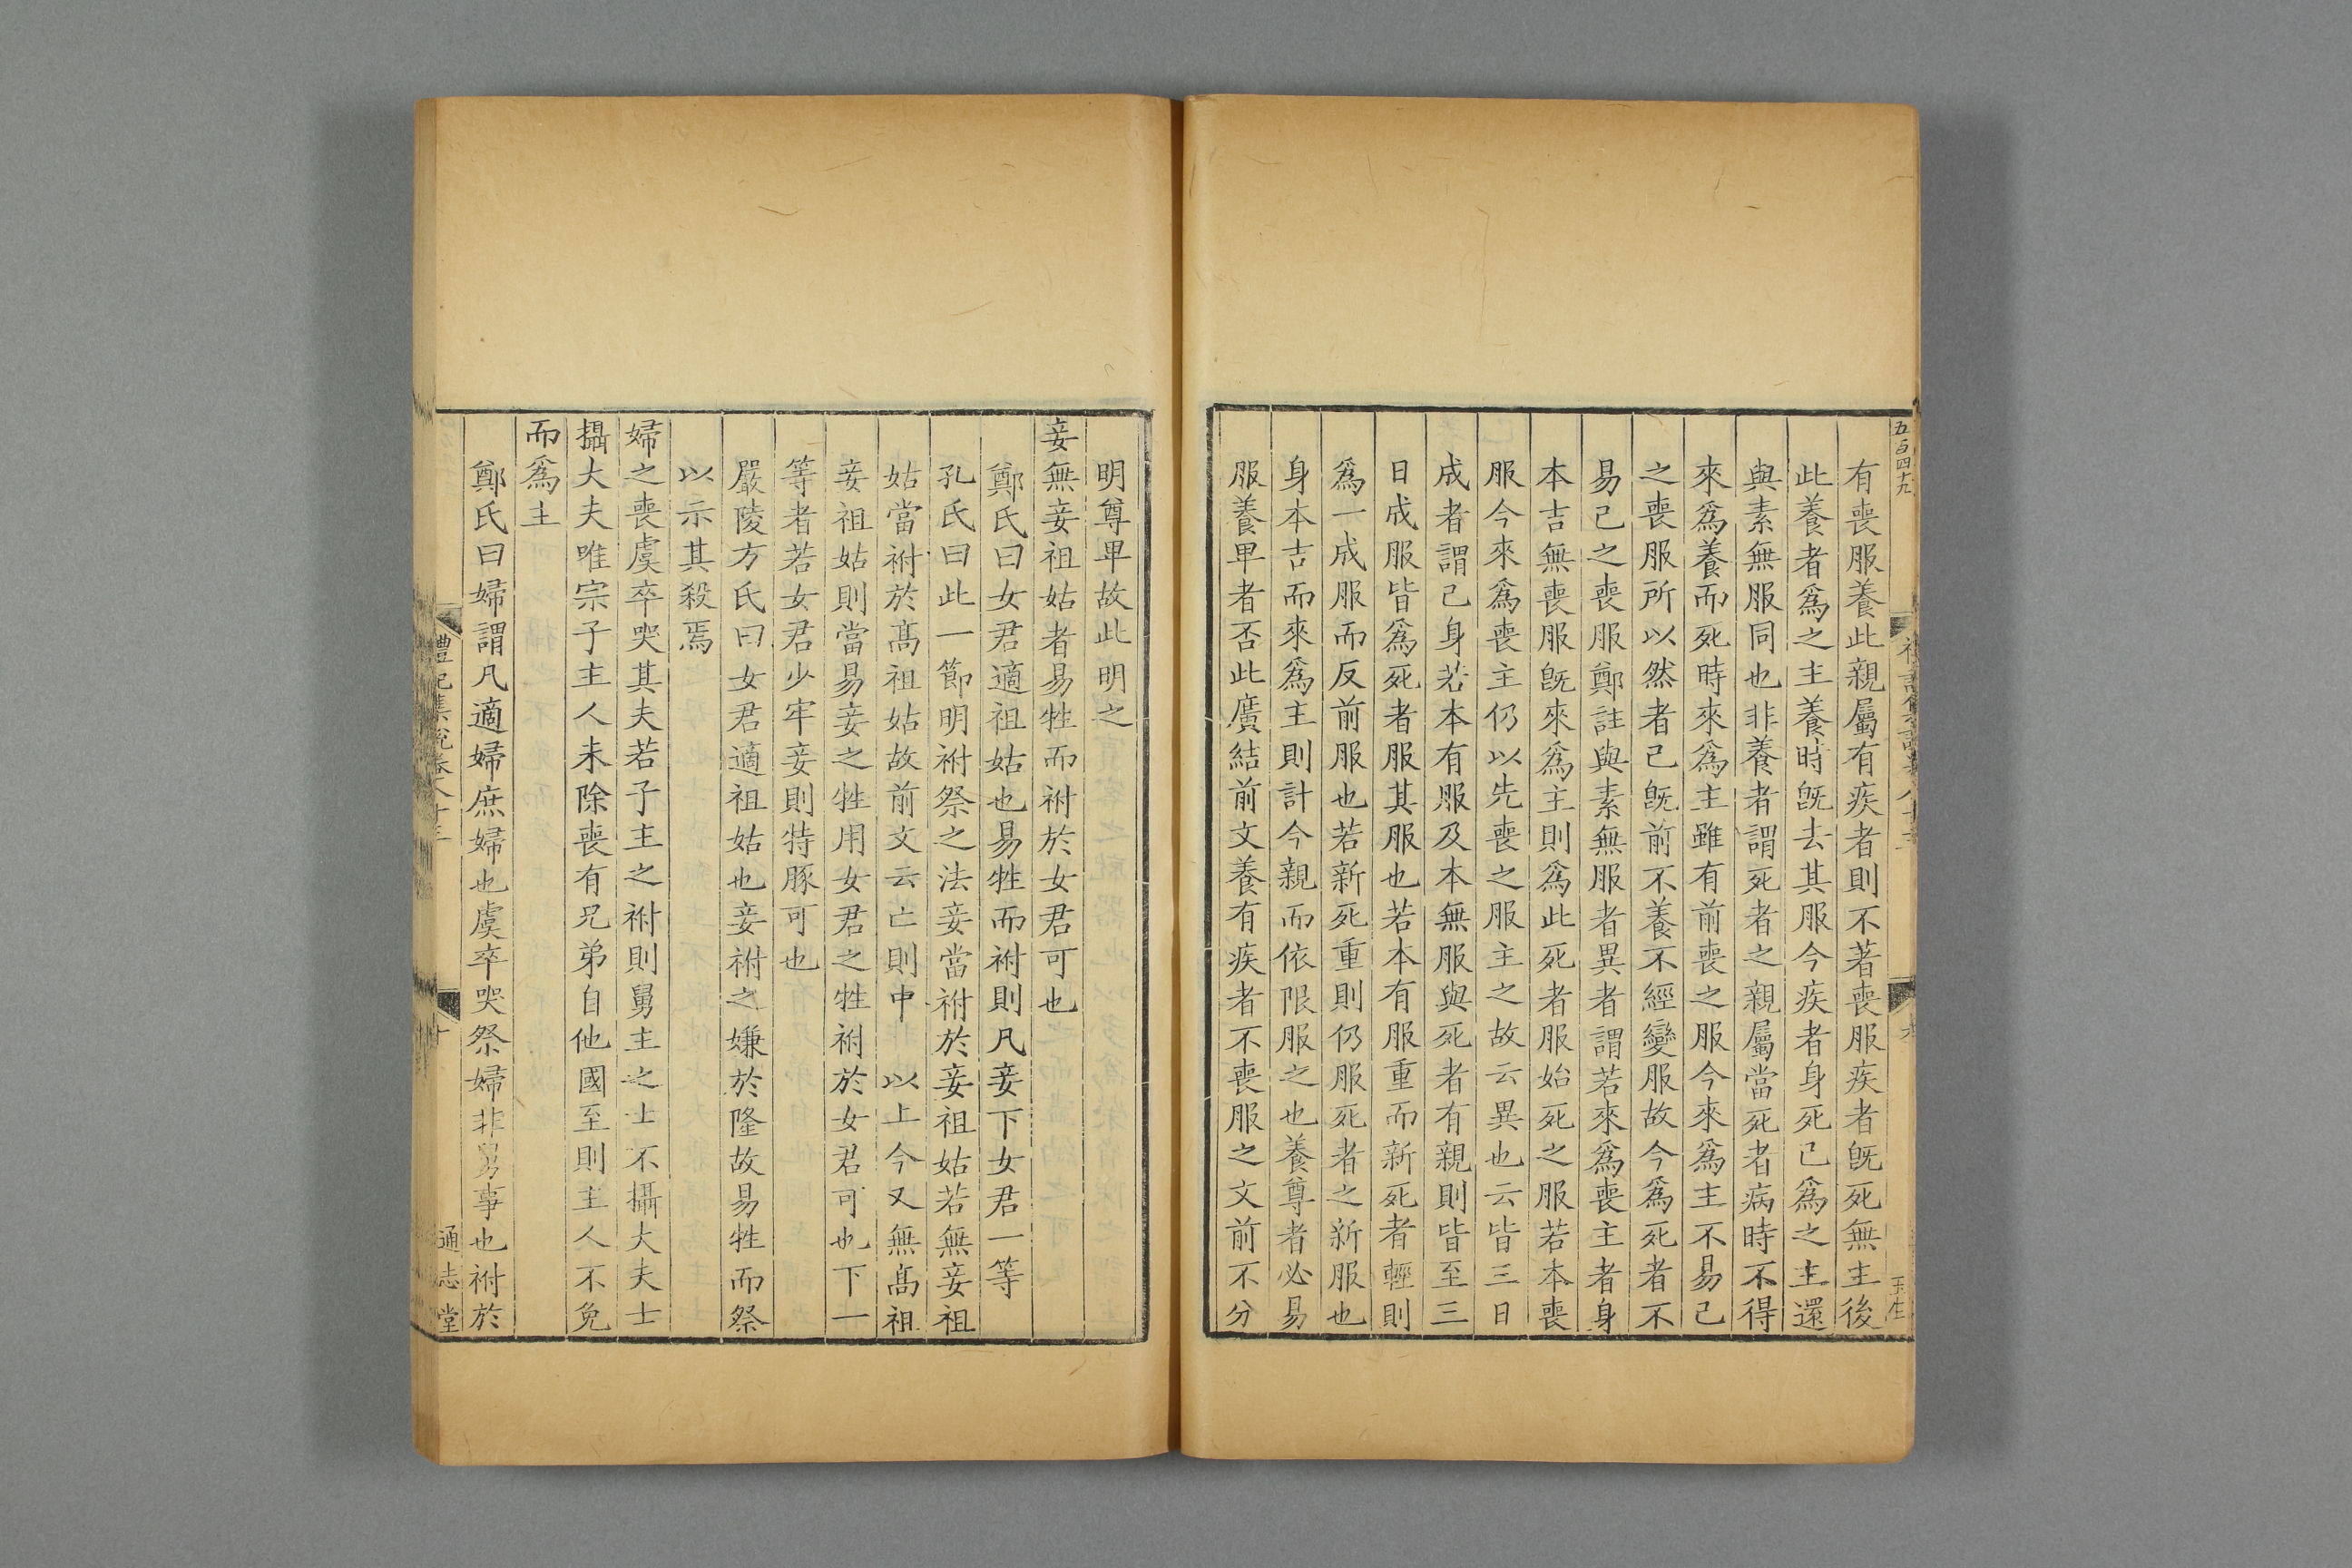 五百四十九
有喪服養此親屬有疾者則不著喪服疾者旣死無主後
此養者爲之主養時旣去其服今疾者身死己爲之主還
與素無服同也非養者謂死者之親屬當死者病時不得
來爲養而死時來爲主雖有前喪之服今來爲主不易己
之喪服所以然者己旣前不養不經變服故今爲死者不
易己之喪服鄭註與素無服者異者謂若來爲喪主者身
本吉無喪服旣來爲主則爲此死者服始死之服若本喪
服今來爲喪主仍以先喪之服主之故云異也云皆三日
成者謂己身若本有服及本無服與死者有親則皆至三
日成服皆爲死者服其服也若本有服重而新死者輕則
爲一成服而反前服也若新死重則仍服死者之新服也
身本吉而來爲主則計今親而依限服之也養尊者必易
服養卑者否此廣結前文養有疾者不喪服之文前不分
明尊卑故此明之
妾無妾祖姑者易牲而祔於女君可也
鄭氏曰女君適祖姑也易牲而祔則凡妾下女君一等
孔氏曰此一節明祔祭之法妾當祔於妾祖姑若無妾祖
姑當祔於髙祖姑故前文云亡則中 以上今又無髙祖
妾祖姑則當易妾之牲用女君之牲祔於女君可也下一
等者若女君少牢妾則特豚可也
嚴陵方氏曰女君適祖姑也妾祔之嫌於隆故易牲而祭
以示其殺焉
婦之喪虞卒哭其夫若子主之祔則舅主之士不攝大夫士
攝大夫唯宗子主人未除喪有兄弟自他國至則主人不免
而爲主
鄭氏曰婦謂凡適婦庶婦也虞卒哭祭婦非舅事也祔於
禮記集說卷八十三
十
通志堂